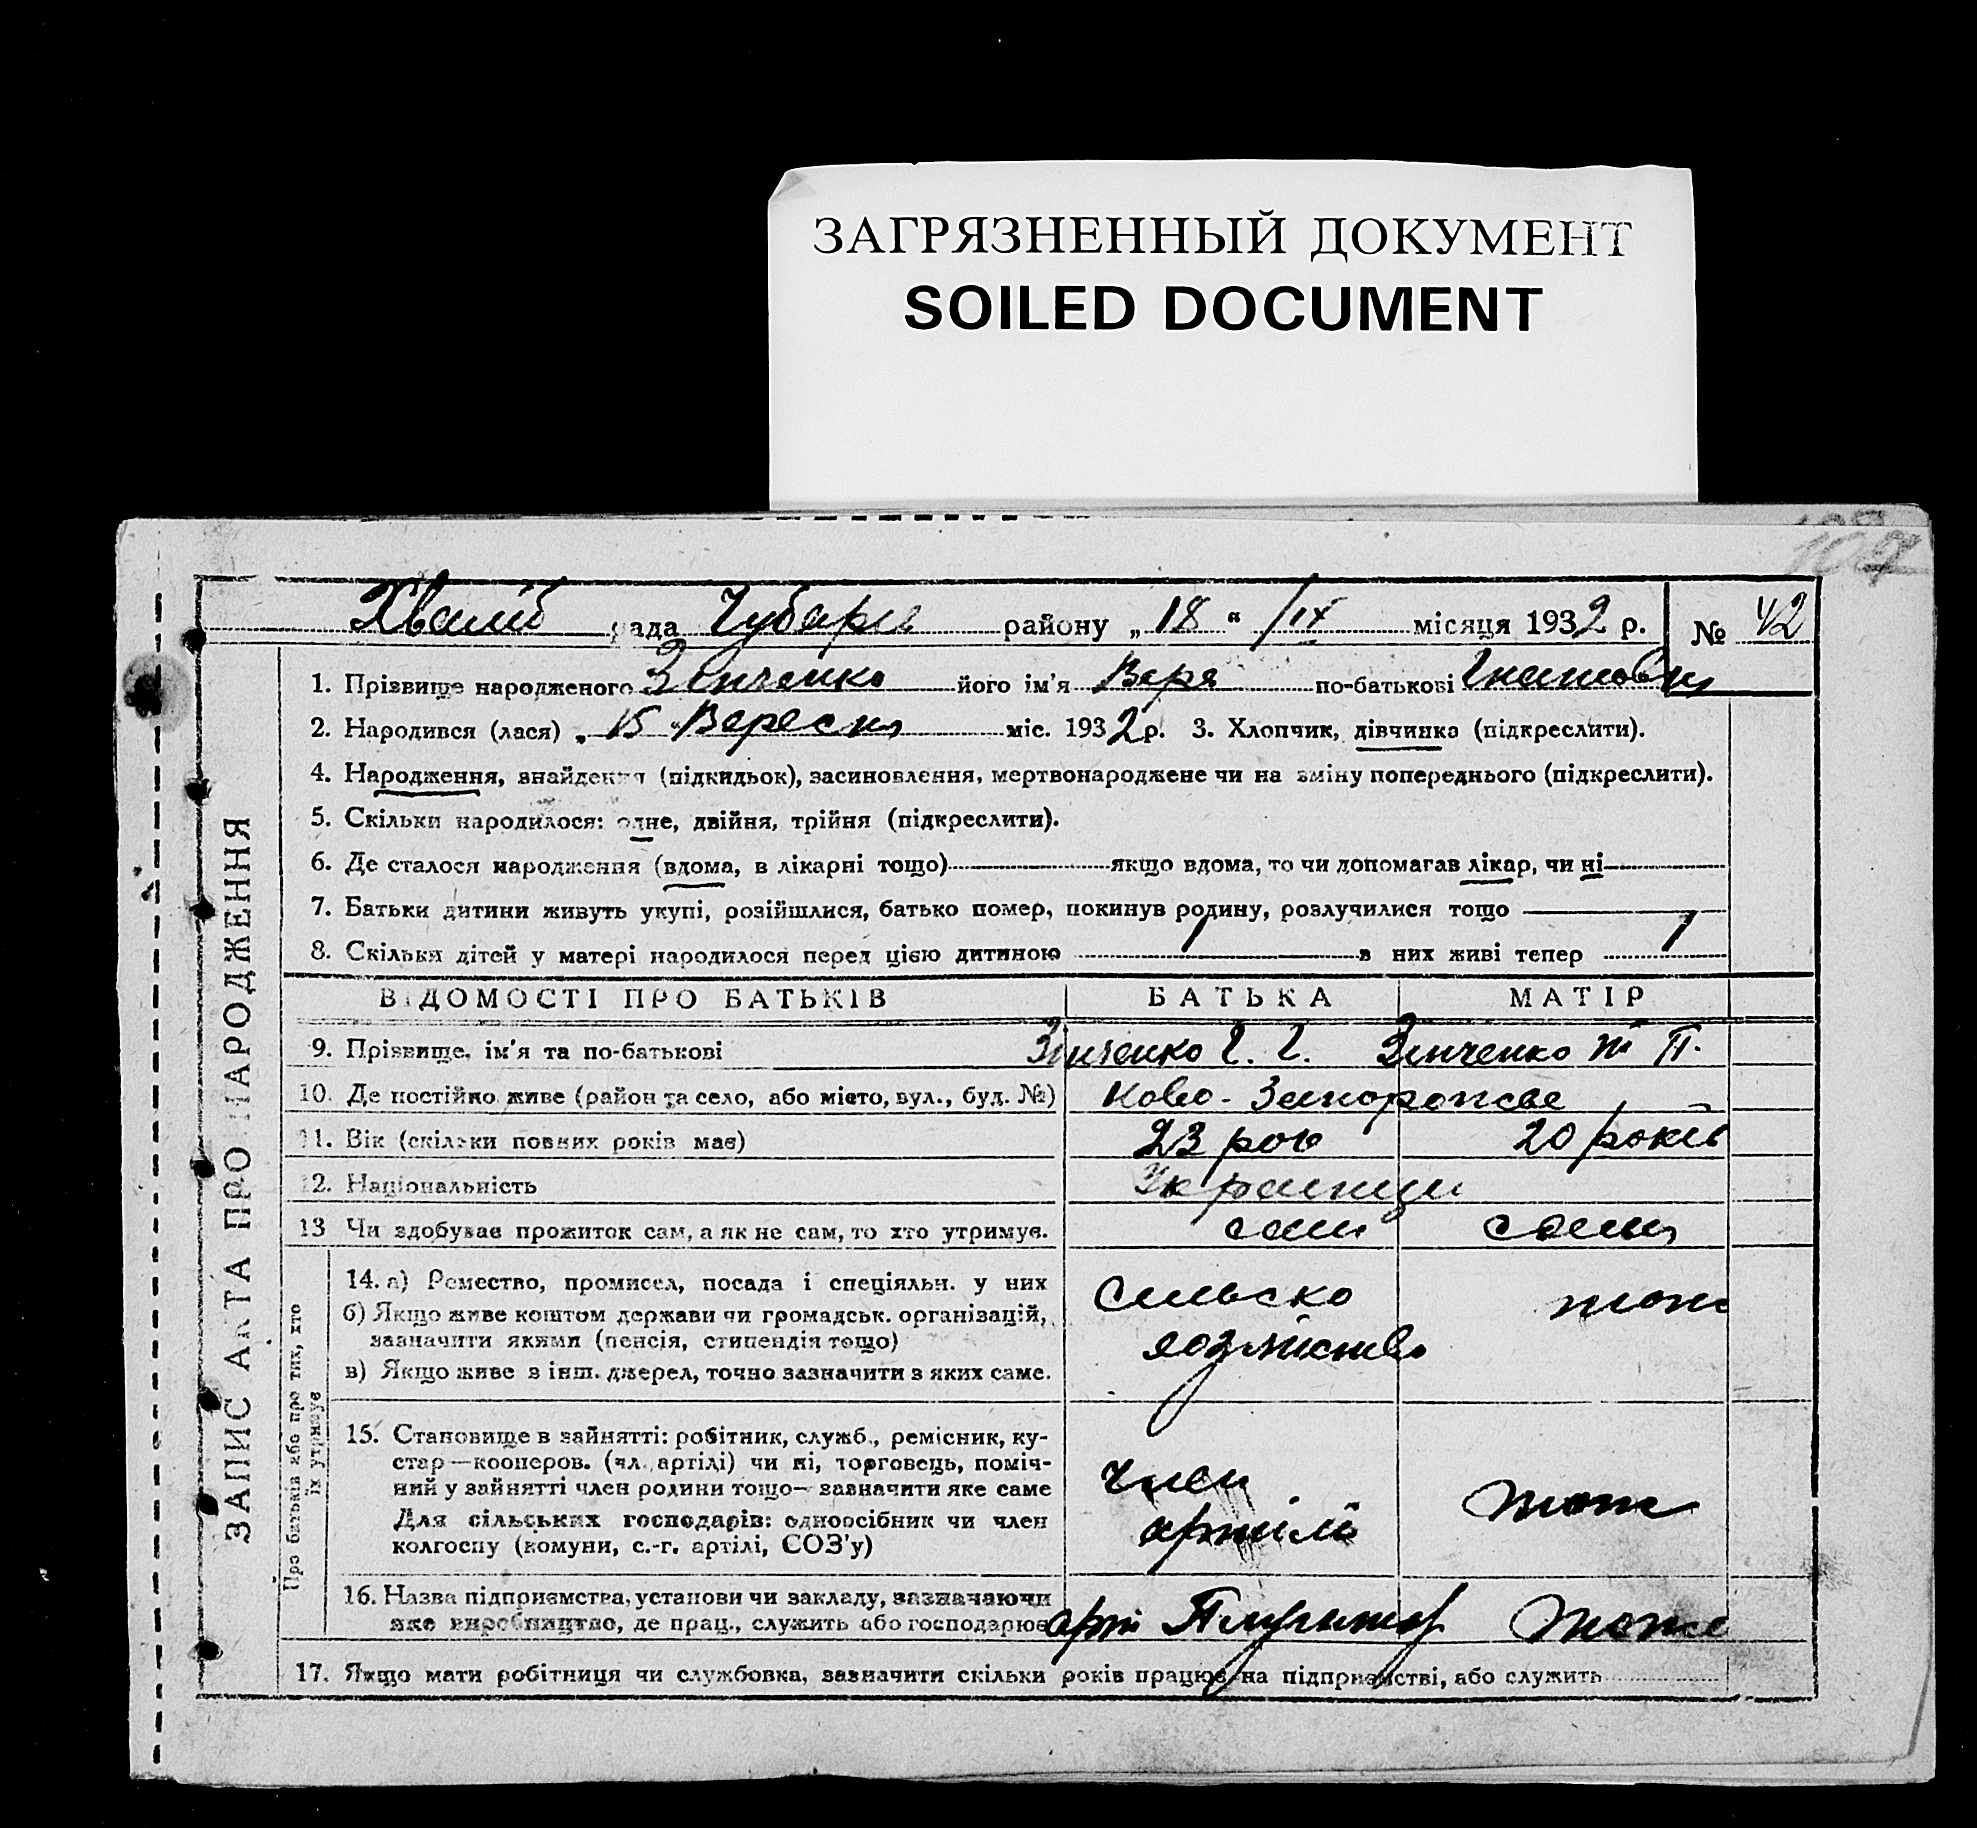 ЗАГРЯЗНЕННЫЙ ДОКУМЕНТ
SOILED DOCUMENT
107
рада Чубаря району „18“ /IX місяця 1932 р. № 42
ЗАПИС АКТА ПРО НАРОДЖЕННЯ
1. Прізвище народженого Зінченко його ім'я Вера по-батькові
2. Народився (лася) „15 „ Вересня міс. 1932 р. 3. Хлопчик, дівчинка (підкреслити).
4. Народження, знайдення (підкидьок), засиновлення, мертвонароджене чи на зміну попереднього (підкреслити).
5. Скільки народилося: одне, двійня, трійня (підкреслити).
6. Де сталося народження (вдома, в лікарні тощо) якщо вдома, то чи допомагав лікар, чи ні
7. Батьки дитини живуть укупі, розійшлися, батько помер, покинув родину, розлучилися тощо
8. Скільки дітей у матері народилося перед цією дитиною 1 з них живі тепер 1
ВІДОМОСТІ ПРО БАТЬКІВ БАТЬКА МАТІР
9. Прізвище, ім'я та по-батькові Зинченко Г. Г. Зинченко М П.
10. Де постійно живе (район та село, або місто, вул., буд. №) Ново-Запорожсве
11. Вік (скільки повних років має) 23 рок 20 років
12. Національність Украинци
13 Чи здобуває прожиток сам, а як не сам, то хто утримує. сам сама
Про батьків або про тих, хто їх утримує
14. а) Ремество, промисел, посада і спеціяльн. у них
б) Якщо живе коштом держави чи громадськ. організацій,
зазначити якими (пенсія, стипендія тощо)
в) Якщо живе з інш. джерел, точно зазначити з яких саме.
Сильско тоже
хозяйство
15. Становище в зайнятті: робітник, служб., ремісник, ку-
стар—кооперов. (чл. артілі) чи ні, торговець, поміч-
ний у зайнятті член родини тощо— зазначити яке саме
Для сільських господарів: одноосібник чи член
колгоспу (комуни, с.-г. артілі, СОЗ'у)
член тоже
артілі
16. Назва підприємства, установи чи закладу, зазначаючи
яке виробництво, де прац., служить або господарює арт тоже
17. Якщо мати робітниця чи службовка, зазначити скільки років працює на підприємстві, або служить